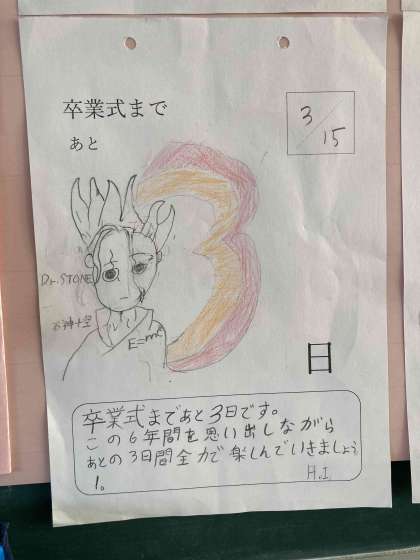 卒業式まで
あと
3/15
3
Dr.STONE
石神千空
E=mc²
日
卒業式まであと3日です。
この6年間を思い出しながら
あとの3日間全力で楽しんでいきましょう
!。
H.I.